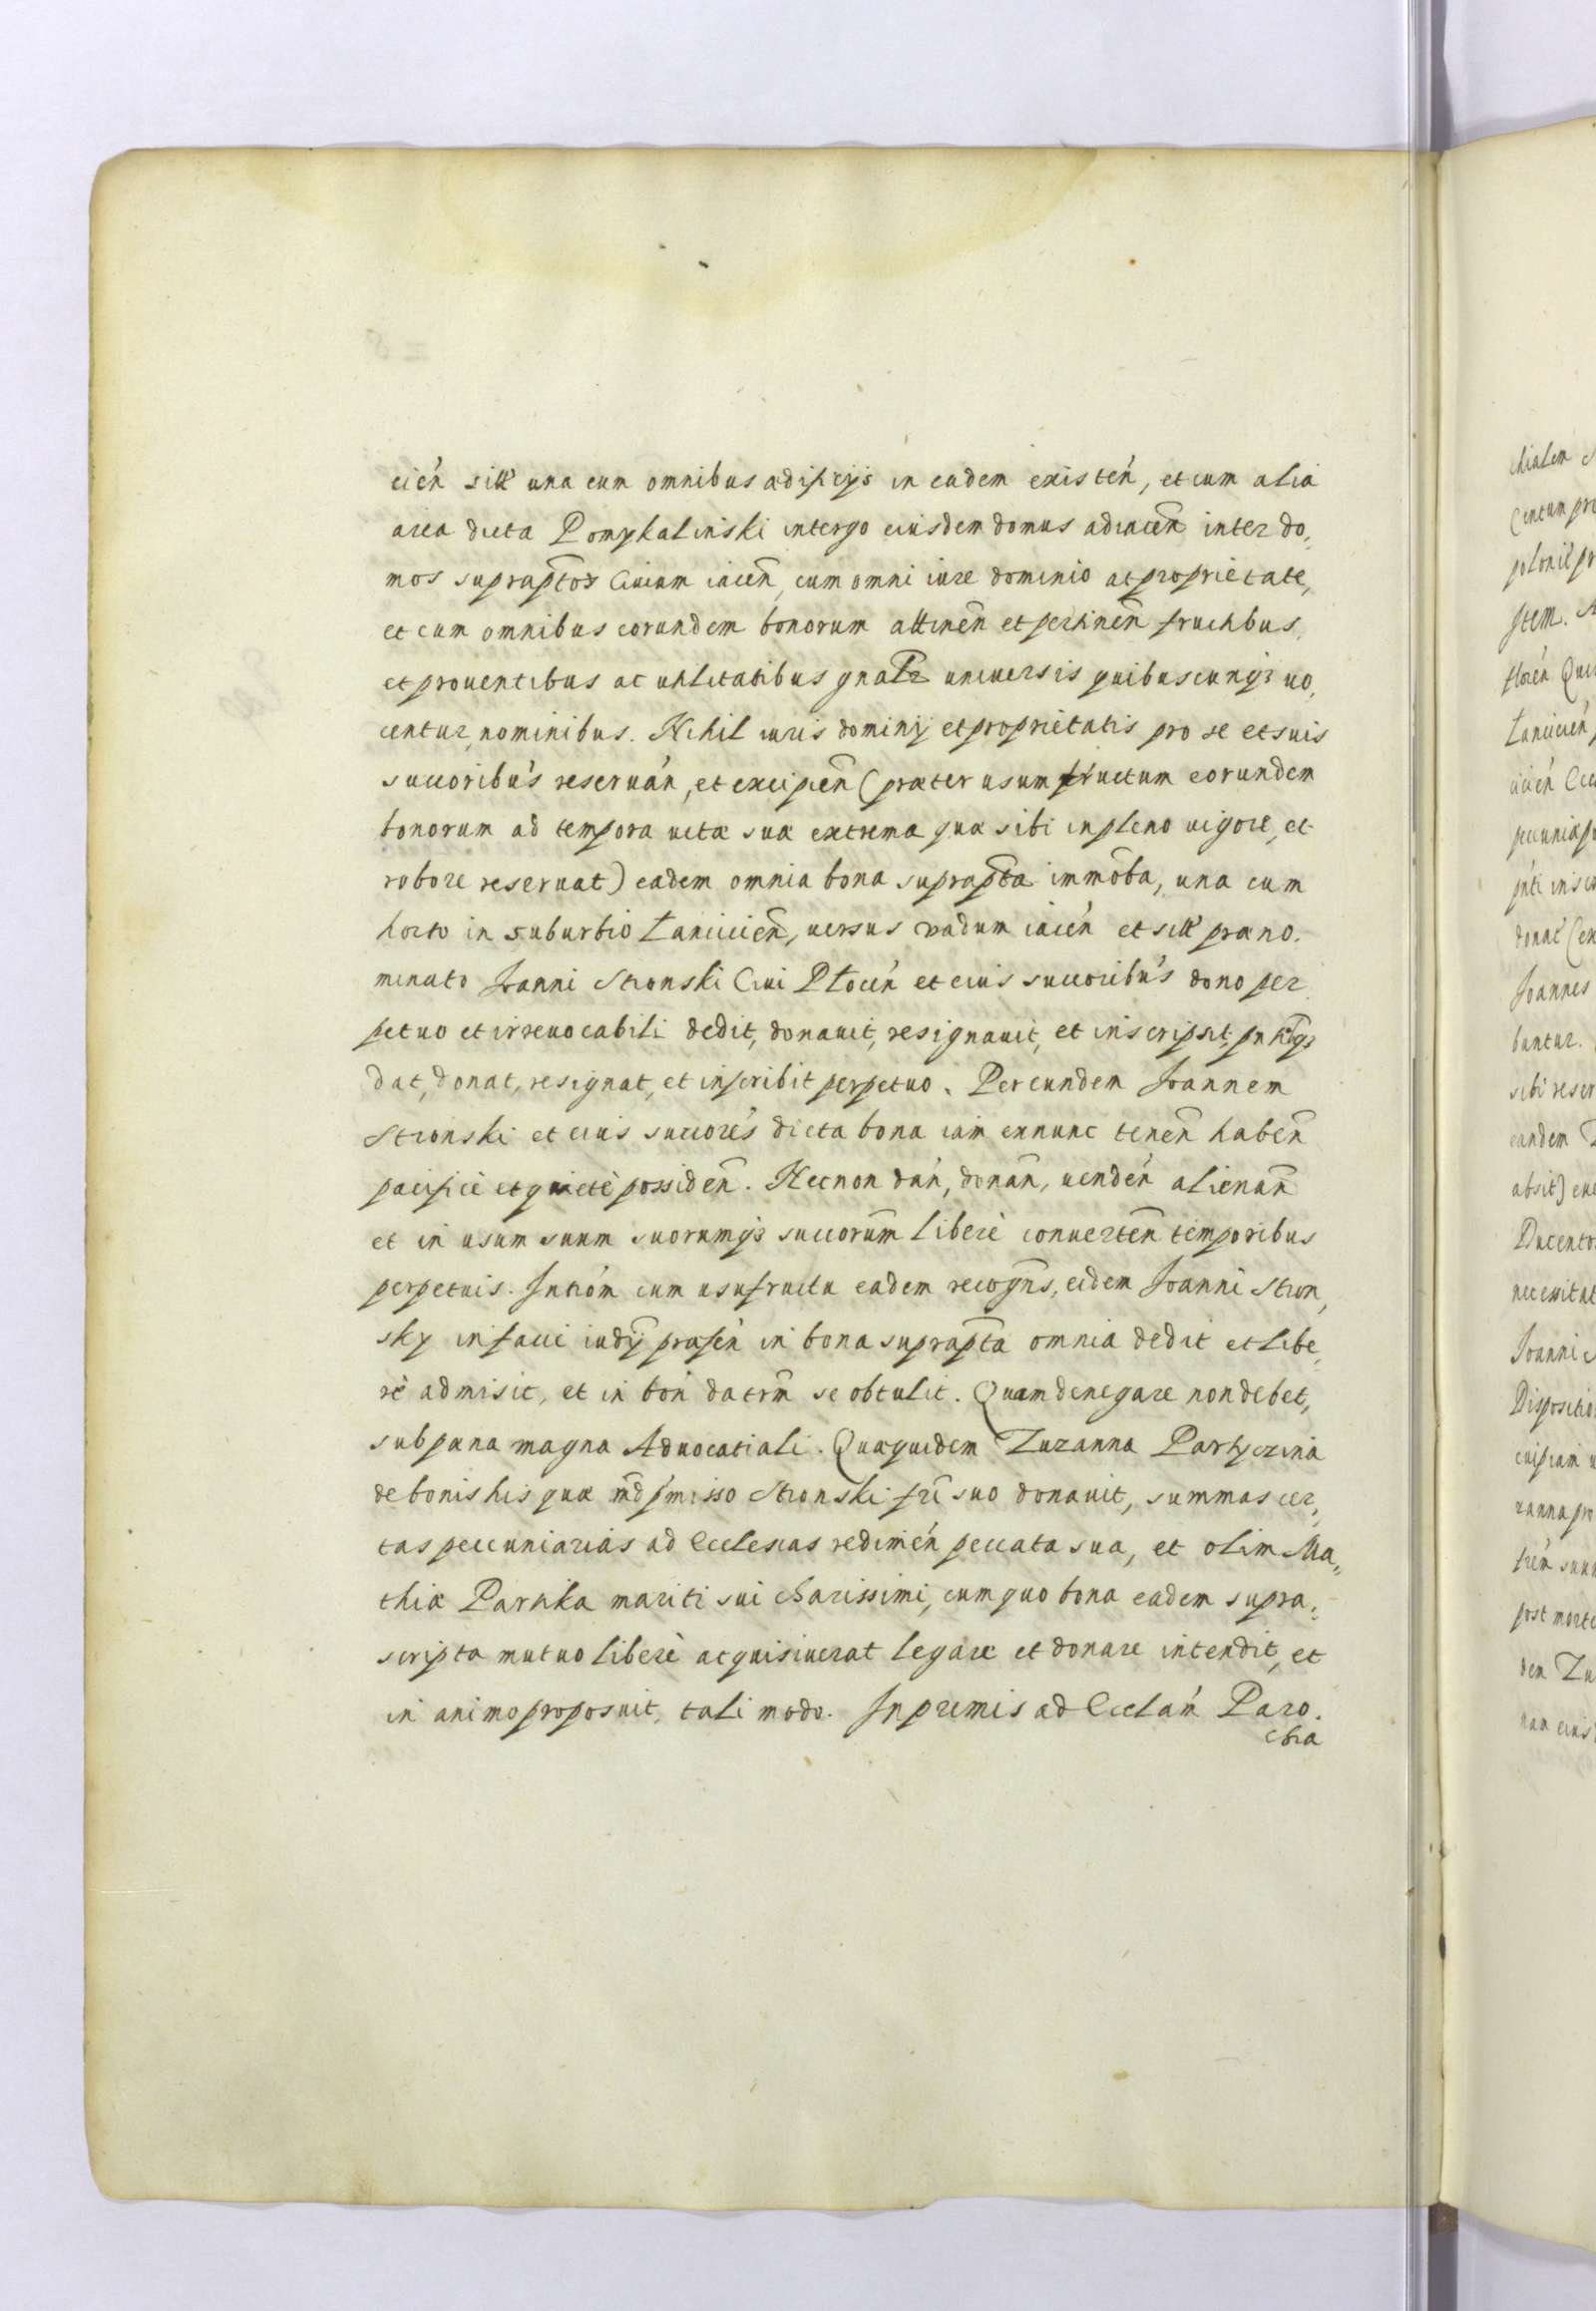 cien sitt una cum omnibus ædificijs in eadem existen, et cum alia
area dicta Pomykalinski intergo eiusdem domus adiacen inter do,
mos supraptor Ciuium iacen, cum omni iure dominio ac proprietate,
et cum omnibus eorundem bonorum attinen et pertinen fructibus,
et prouentibus ac utilitatibus gnalr uniuersis quibuscunq; uo,
centur nominibus. Nihil iuris dominij et proprietatis pro se et suis
succoribus reseruan, et excipien (præter usum fructum eorundem
bonorum ad tempora uitæ suæ extrema quæ sibi in pleno uigore, et
robore reseruat) eadem omnia bona suprapta immoba, una cum
horto in suburbio Łanicien, uersus vadum iacen et sitt præno.
minato Joanni Stronski Ciui Płocen et eius succoribus dono per
petuo et irreuocabili dedit, donauit, resignauit, et inscripsit, pntibq;
dat, donat, resignat, et inscribit perpetuo. Per eundem Joannem
Stronski et eius succores dicta bona iam exnunc tenen haben
pacifice et quiete possiden. Necnon dan, donan, uenden alienan
et in usum suum suorumq; succorum liberè conuerten temporibus
perpetuis. Intrōm cum usufructu eadem recogns, eidem Joanni Stron,
sky in facie iudij præsen in bona suprapta omnia dedit et libe,
rè admisit, et in bon datrm se obtulit. Quam denegare non debet,
sub pæna magna Aduocatiali. Quæquidem Zuzanna Partyczina
de bonis his quæ mdo pmisso Stronski fri suo donauit, summas cer,
tas peccuniarias ad Ecclesias redimen peccata sua, et olim Ma,,
thiæ Partika mariti sui charissimi, cum quo bona eadem supra,
scripta mutuo liberè acquisiuerat legare et donare intendit, et
in animo proposuit, tali modo. Inprimis ad Ecclan Paro.
chia